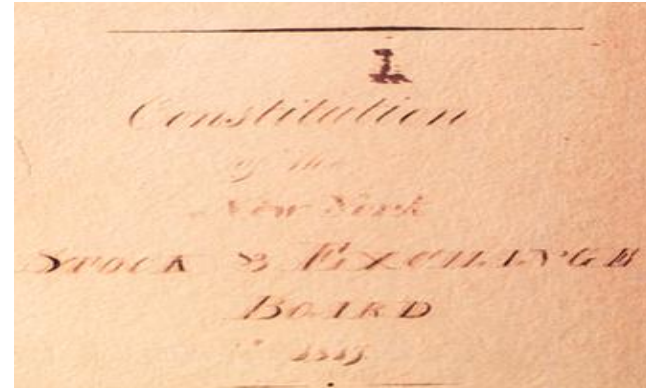 1
Constitution
of the
New York
STOCK & EXCHANGE
BOARD